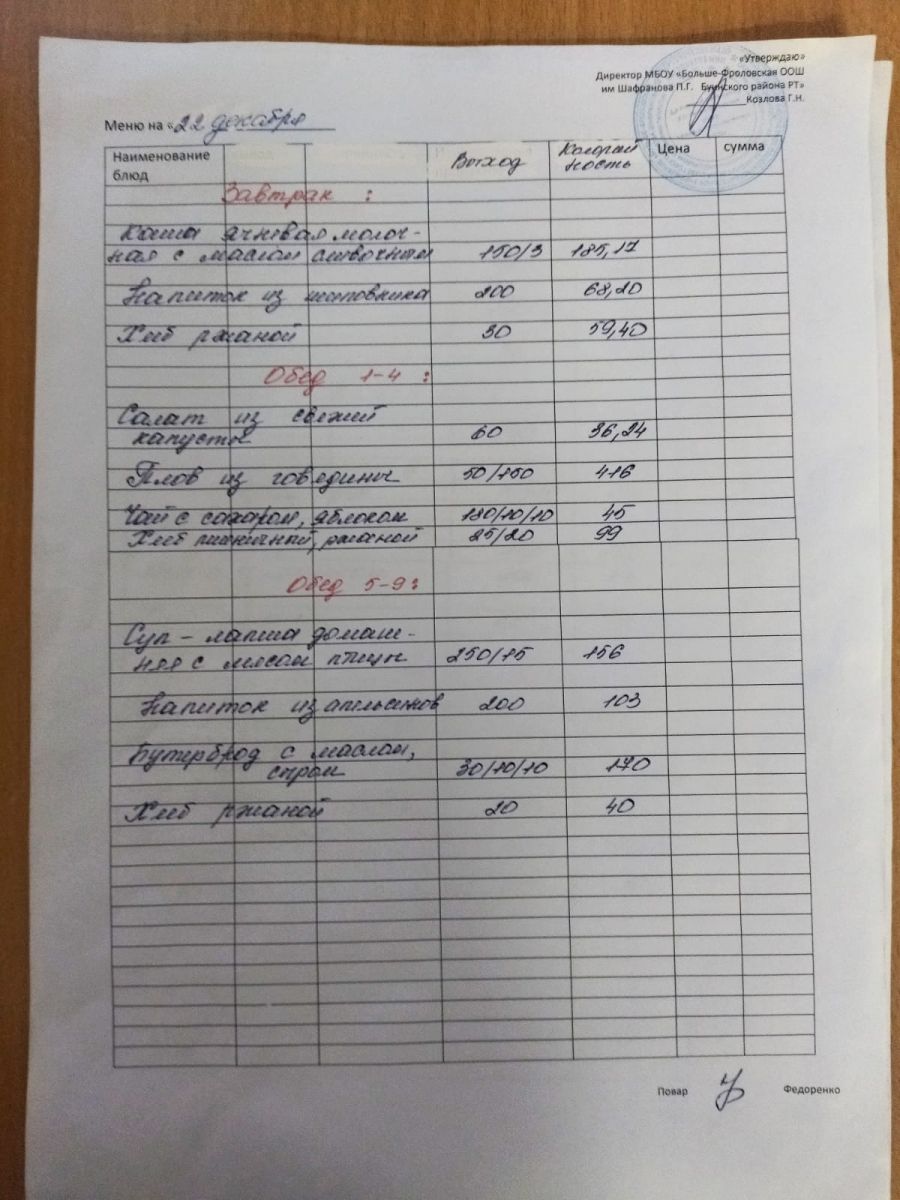 «Утверждаю»
Директор МБОУ «Больше-Фроловская ООШ
им Шафранова П.Г. Буинского района РТ»
Козлова Г.Н.
Меню на «22 декабря
Наименование блюд Выход Колорий ность Цена сумма
Завтрак :
Каша ячневая молоч-
ная с маслом сливочным 150/3 185,17
Напиток из шиповника 200 68,20
Хлеб ржаной 30 59,40
Обед 1-4 :
Салат из свежий
капусты 60 36,24
Плов из говядины 50/150 416
Чай с сахаром, яблоком 180/10/10 45
Хлеб пшеничный, ржаной 25/20 99
Обед 5-9:
Суп - лапша домаш-
няя с мясом птицы 250/15 156
Напиток из апельсинов 200 103
Бутерброд с маслом,
сыром 30/10/10 170
Хлеб ржаной 20 40
Повар Федоренко